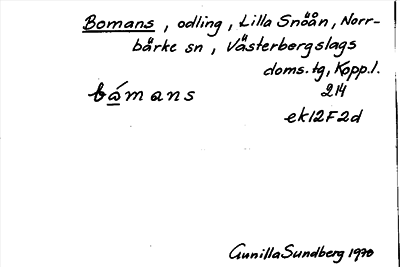 Bomans, odling, Lilla Snöån, Norr-
bärke sn, Västerbergslags
doms. tg, Kopp.l.
bǻmans 214
ek12F2d
Gunilla Sundberg 1970